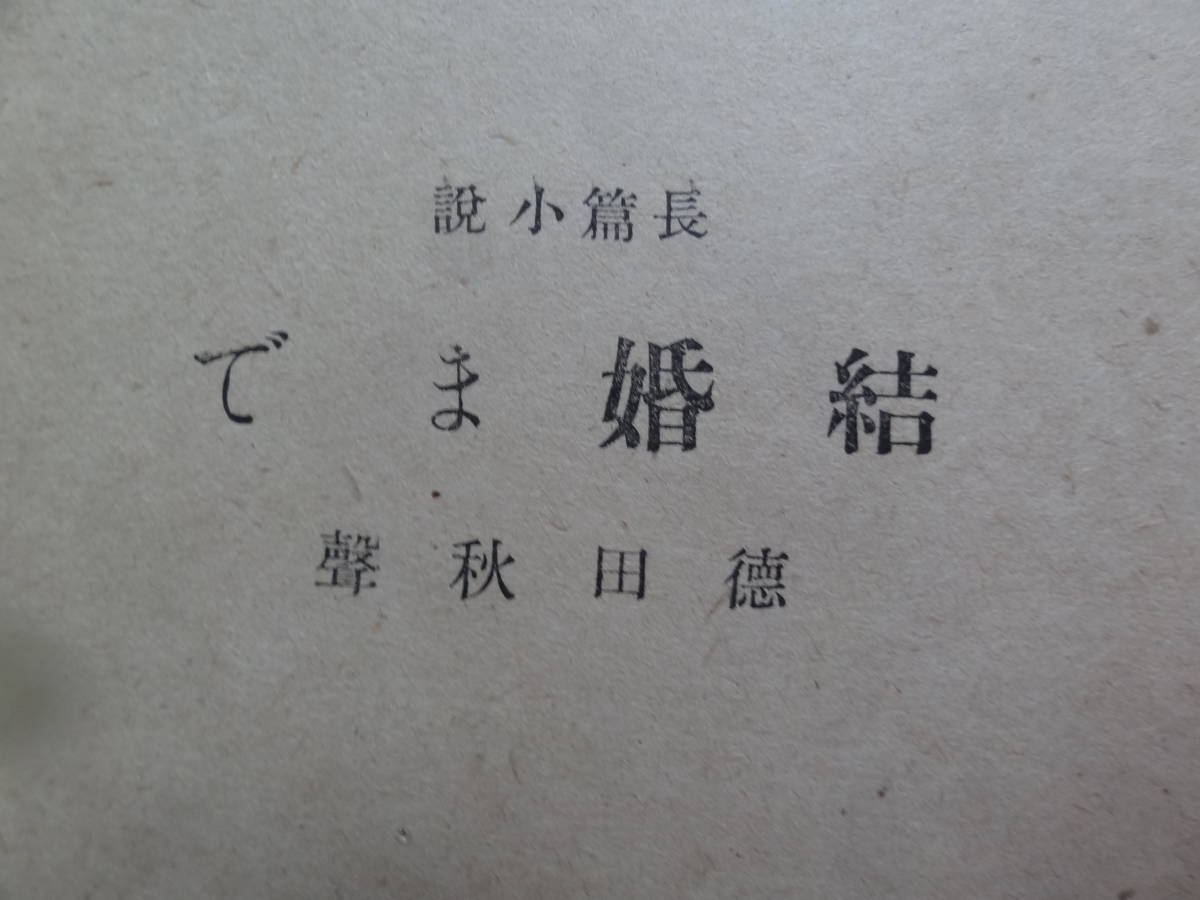 長篇小說
結婚まで
德田秋聲